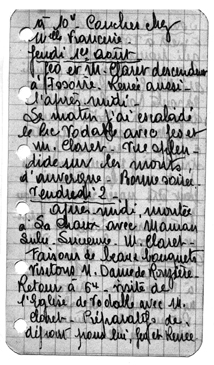 à 10h Coucher chez
Melle Francine -
Jeudi 1er août -
Géo et M. Claret descendent
à Issoire. Renée aussi -
l'après midi -
Le matin j'ai escaladé
le Pic Vodable avec Géo et
M. Claret - Vue splen
dide sur les monts
d'auvergne - Bonne soirée -
Vendredi 2
après midi, montée
à La Chaux avec Maman
M. Claret -
Faisons de beaux bouquets
Visitons N. Dame de
Retour à 6h - visite de
l'Eglise de Vodable avec M.
Claret - Préparatifs de
départ pour lui, Géo et Renée